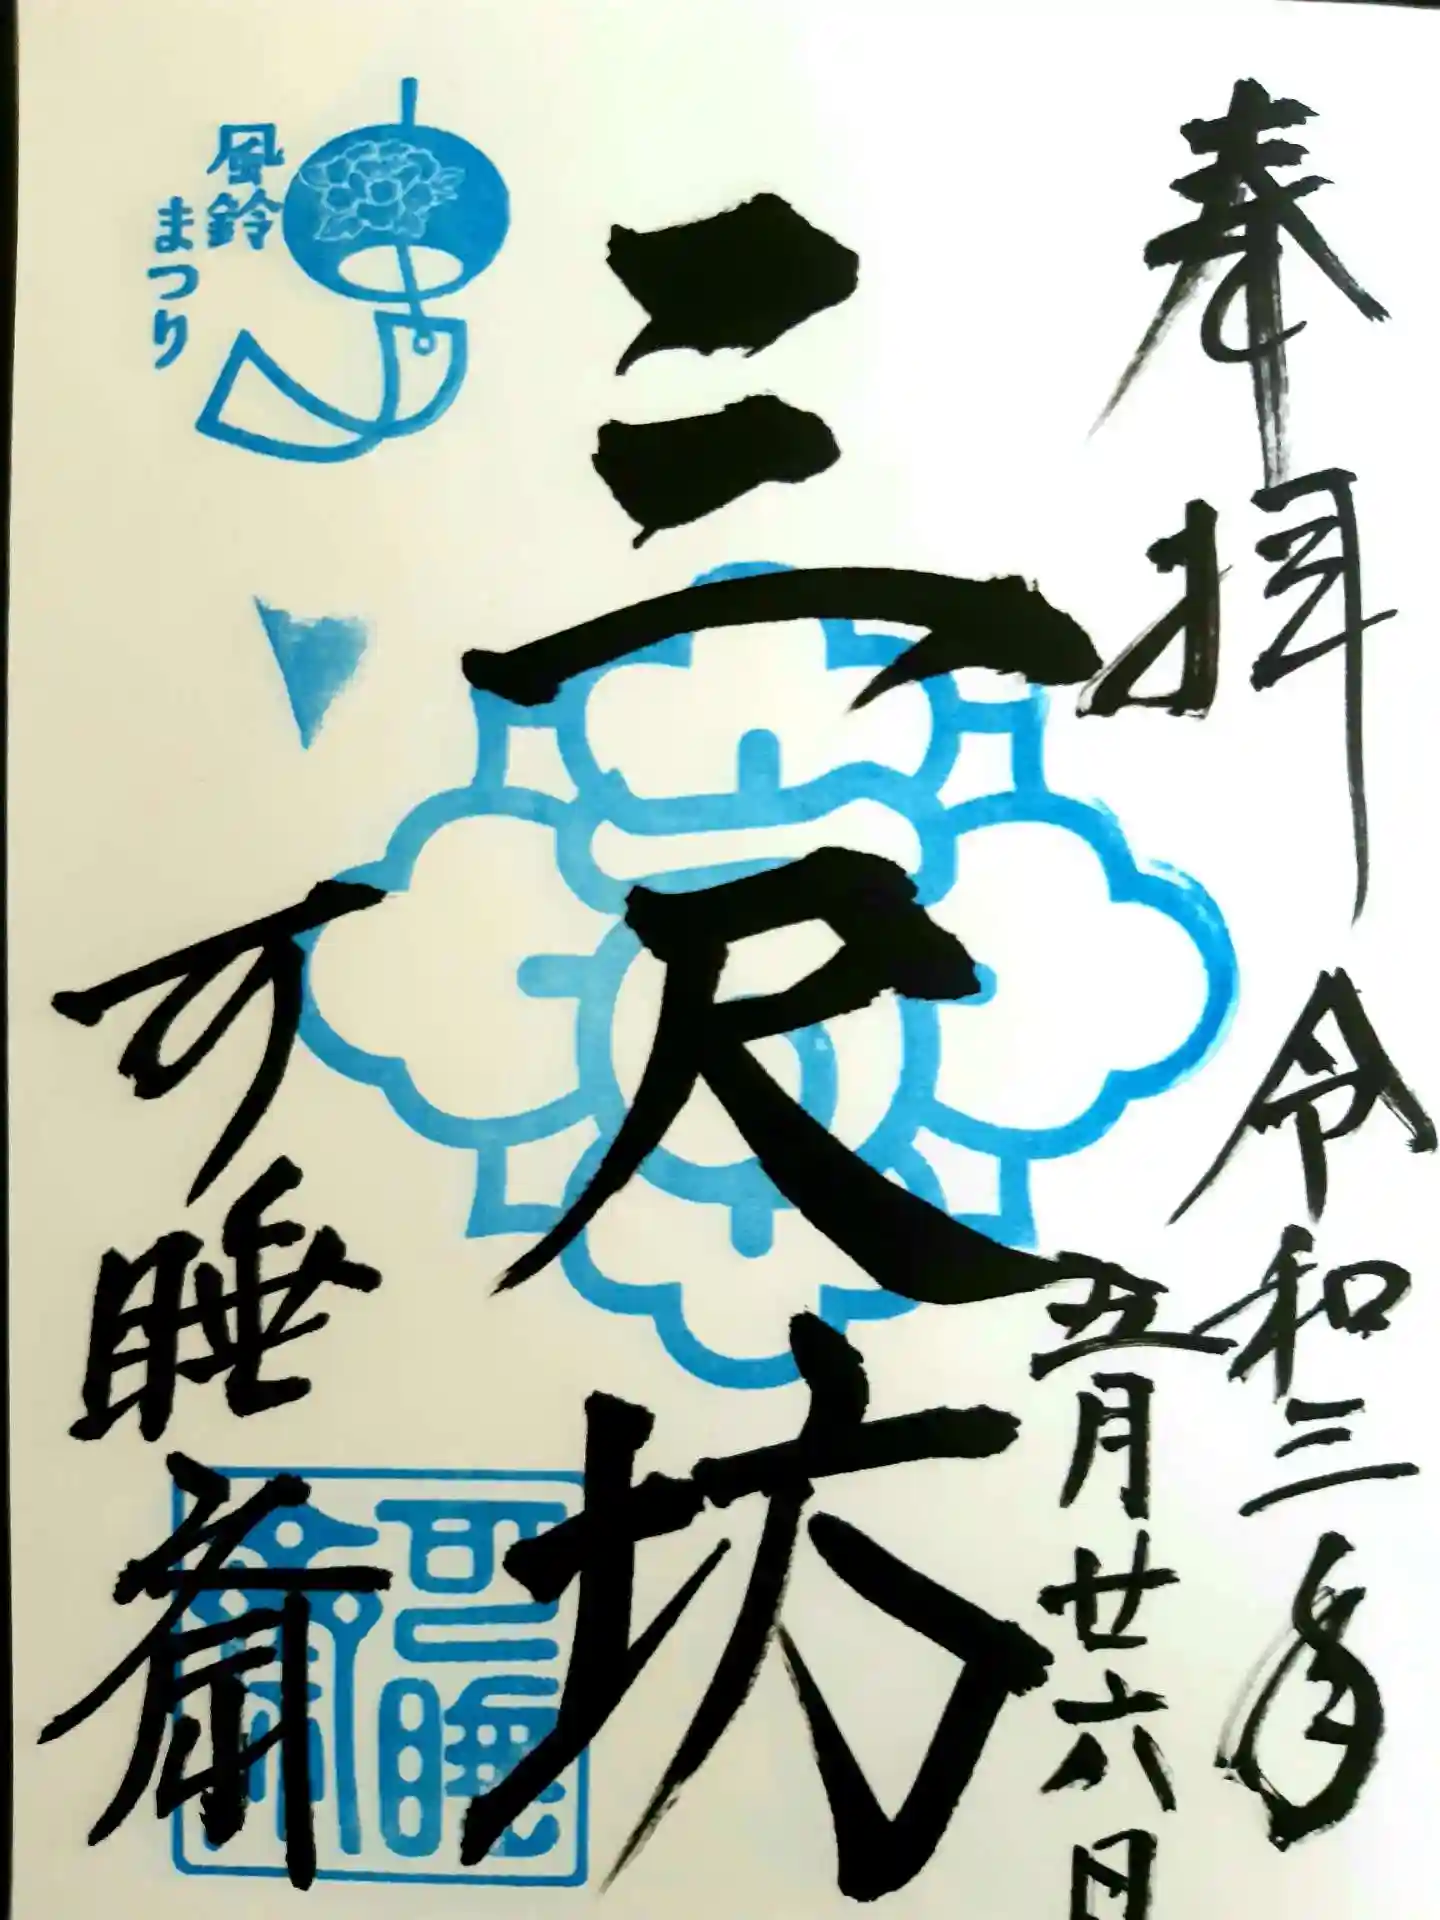 奉拝
令和三年
五月廿六日
三尺坊
風鈴
まつり
可睡斎
可睡
齋